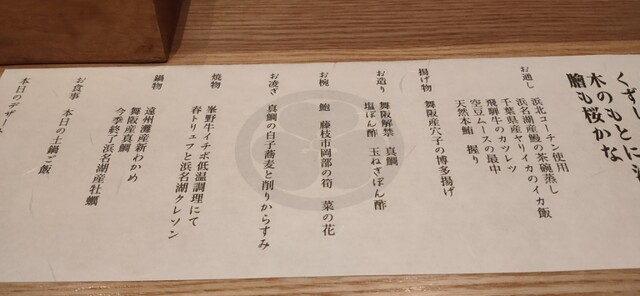 木のもとに
膾も桜かな
お通し
浜北コーチン使用
浜名湖産鰻の茶碗蒸し
千葉県産ヤリイカのイカ飯
飛騨牛のカツレツ
空豆ムースの最中
天然本鮪　握り
揚げ物
舞阪産穴子の博多揚げ
お造り
舞阪解禁　真鯛
塩ぽん酢　玉ねぎぽん酢
お椀
鮑　藤枝市岡部の筍　菜の花
お凌ぎ
真鯛の白子蕎麦と削りからすみ
焼物
峯野牛イチボ低温調理にて
春トリュフと浜名湖クレソン
鍋物
遠州灘産新わかめ
舞阪産真鯛
今季終了浜名湖産牡蠣
お食事
本日の土鍋ご飯
本日のデザ